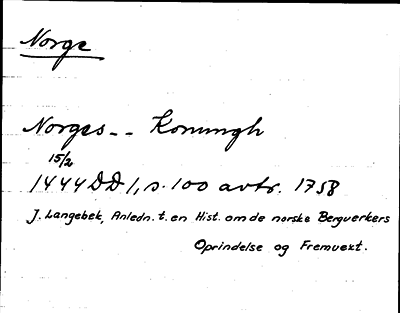 Norge
Norges -- Konungh
15/2
1444 DD 1, s. 100 avtr. 1758
J. Langebek, Anledn. t. en Hist. om de norske Bergverkers
Oprindelse og Fremvext.